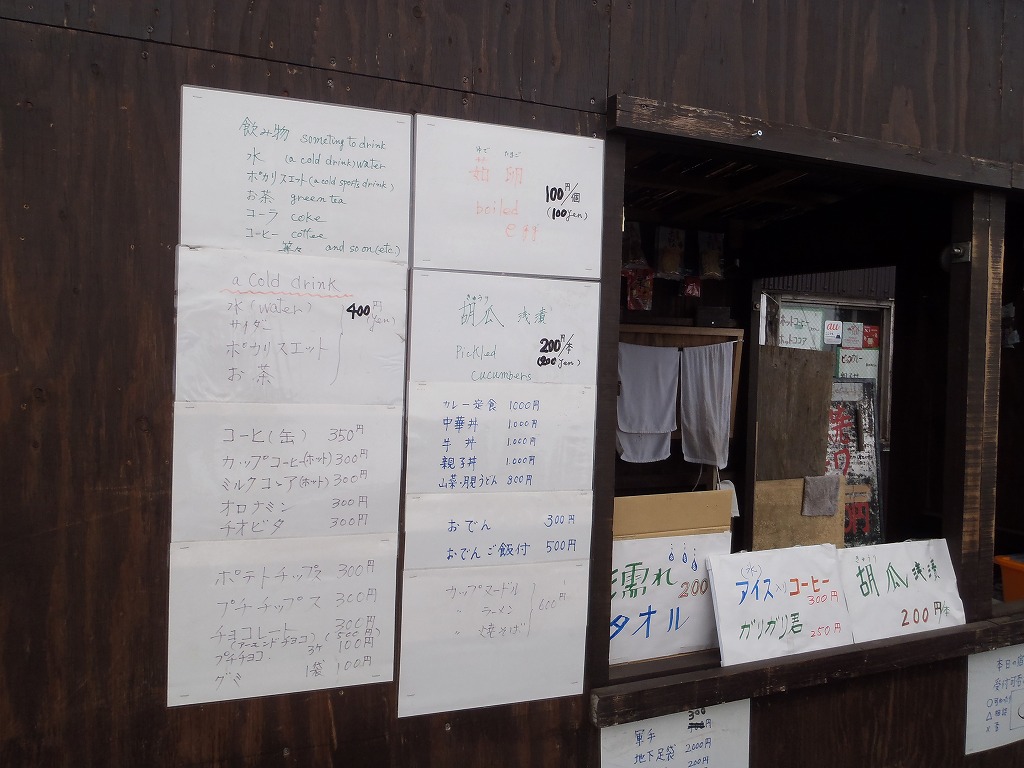 飲み物 someting to drink
水 (a cold drink) water
ポカリスエット (a cold sports drink)
お茶 green tea
コーラ coke
コーヒー coffee
等々 and so on (etc.)
a cold drink
水 (water)
サイダー
ポカリスエット
お茶
400円
(yen)
コーヒ(缶) 350円
カップコーヒー(ホット) 300円
ミルクココア(ホット) 300円
オロナミン 300円
チオビタ 300円
ポテトチップス 300円
プチチップス 300円
チョコレート 300円
(アーモンドチョコ) (500円)
プチチョコ 3ケ 100円
グミ 1袋 100円
ゆで たまご
茹 卵
100円/個
(100yen)
boiled
egg
きゅうり
胡瓜 浅漬
200円/本
(200yen)
Pickled
cucumbers
カレー定食 1000円
中華丼 1,000円
牛丼 1,000円
親子丼 1,000円
山菜・月見うどん 800円
おでん 300円
おでんご飯付 500円
カップヌードル
〃 ラーメン
〃 焼そば
600円
ホットコーヒー
ホットココア
au
濡れ
200
タオル
(氷)
アイス入りコーヒー
300円
ガリガリ君 250円
きゅうり
胡瓜 浅漬
200円/本
300
軍手
地下足袋 2000円
200円
本日の
受付可